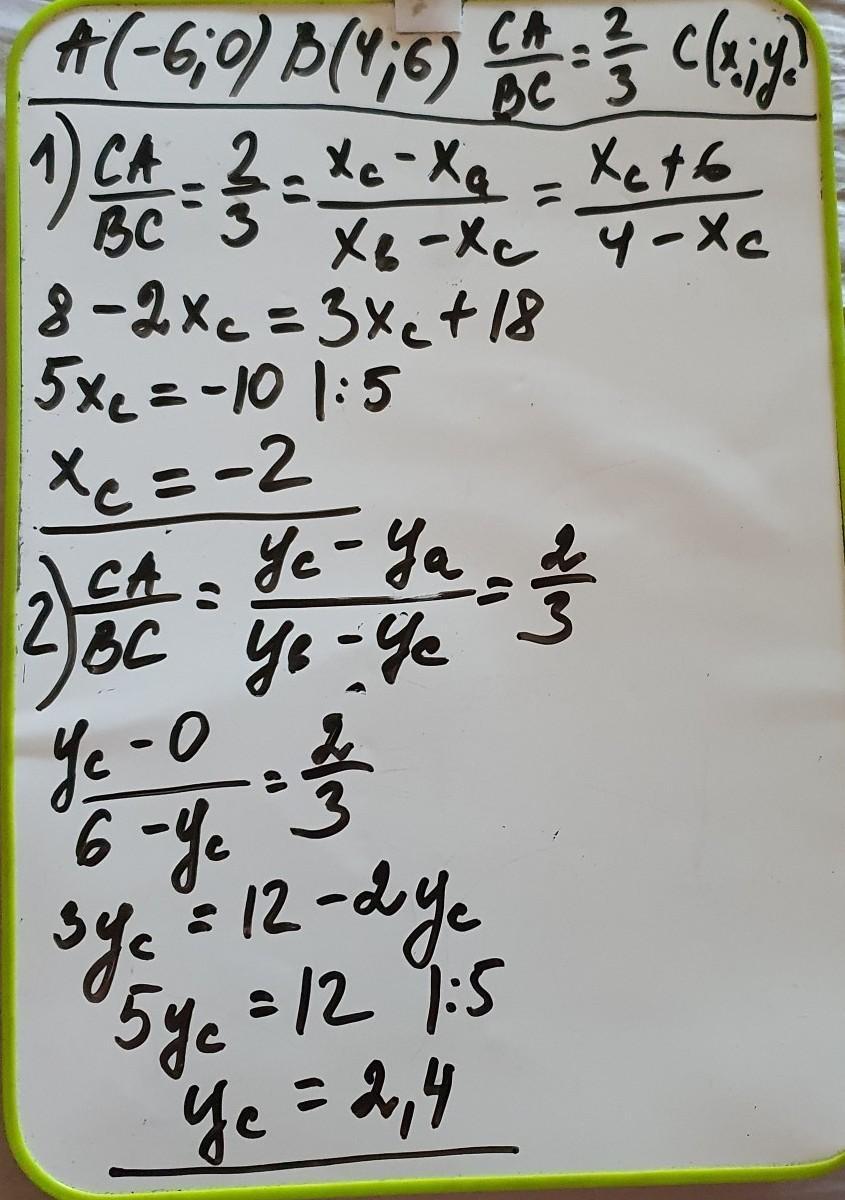 A(-6;0) B(4;6) CA/BC = 2/3 C(x;y)
1) CA/BC = 2/3 = (xc - xa)/(xb - xc) = (xc + 6)/(4 - xc)
8 - 2xc = 3xc + 18
5xc = -10 |:5
xc = -2
2) CA/BC = (yc - ya)/(yb - yc) = 2/3
(yc - 0)/(6 - yc) = 2/3
3yc = 12 - 2yc
5yc = 12 |:5
yc = 2,4